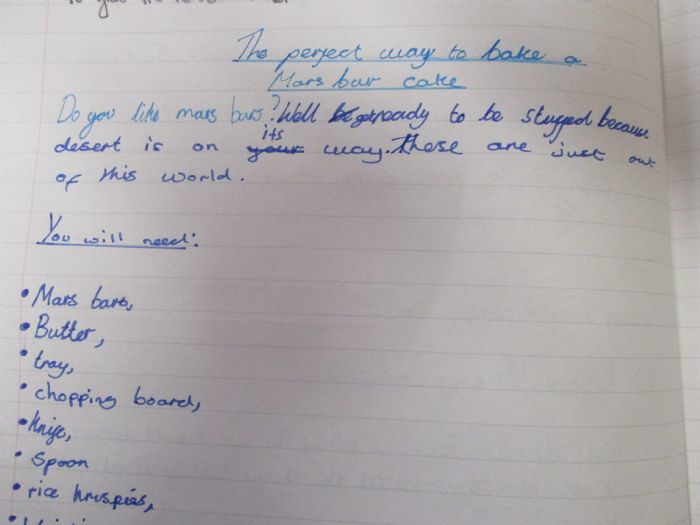 The perfect way to bake a
Mars bar cake
Do you like mars bars? Well get ready to be stuffed because
desert is on its way. These are just out
of this world.
You will need:
• Mars bars,
• Butter,
• tray,
• chopping board,
• Knife,
• Spoon
• rice krispies,